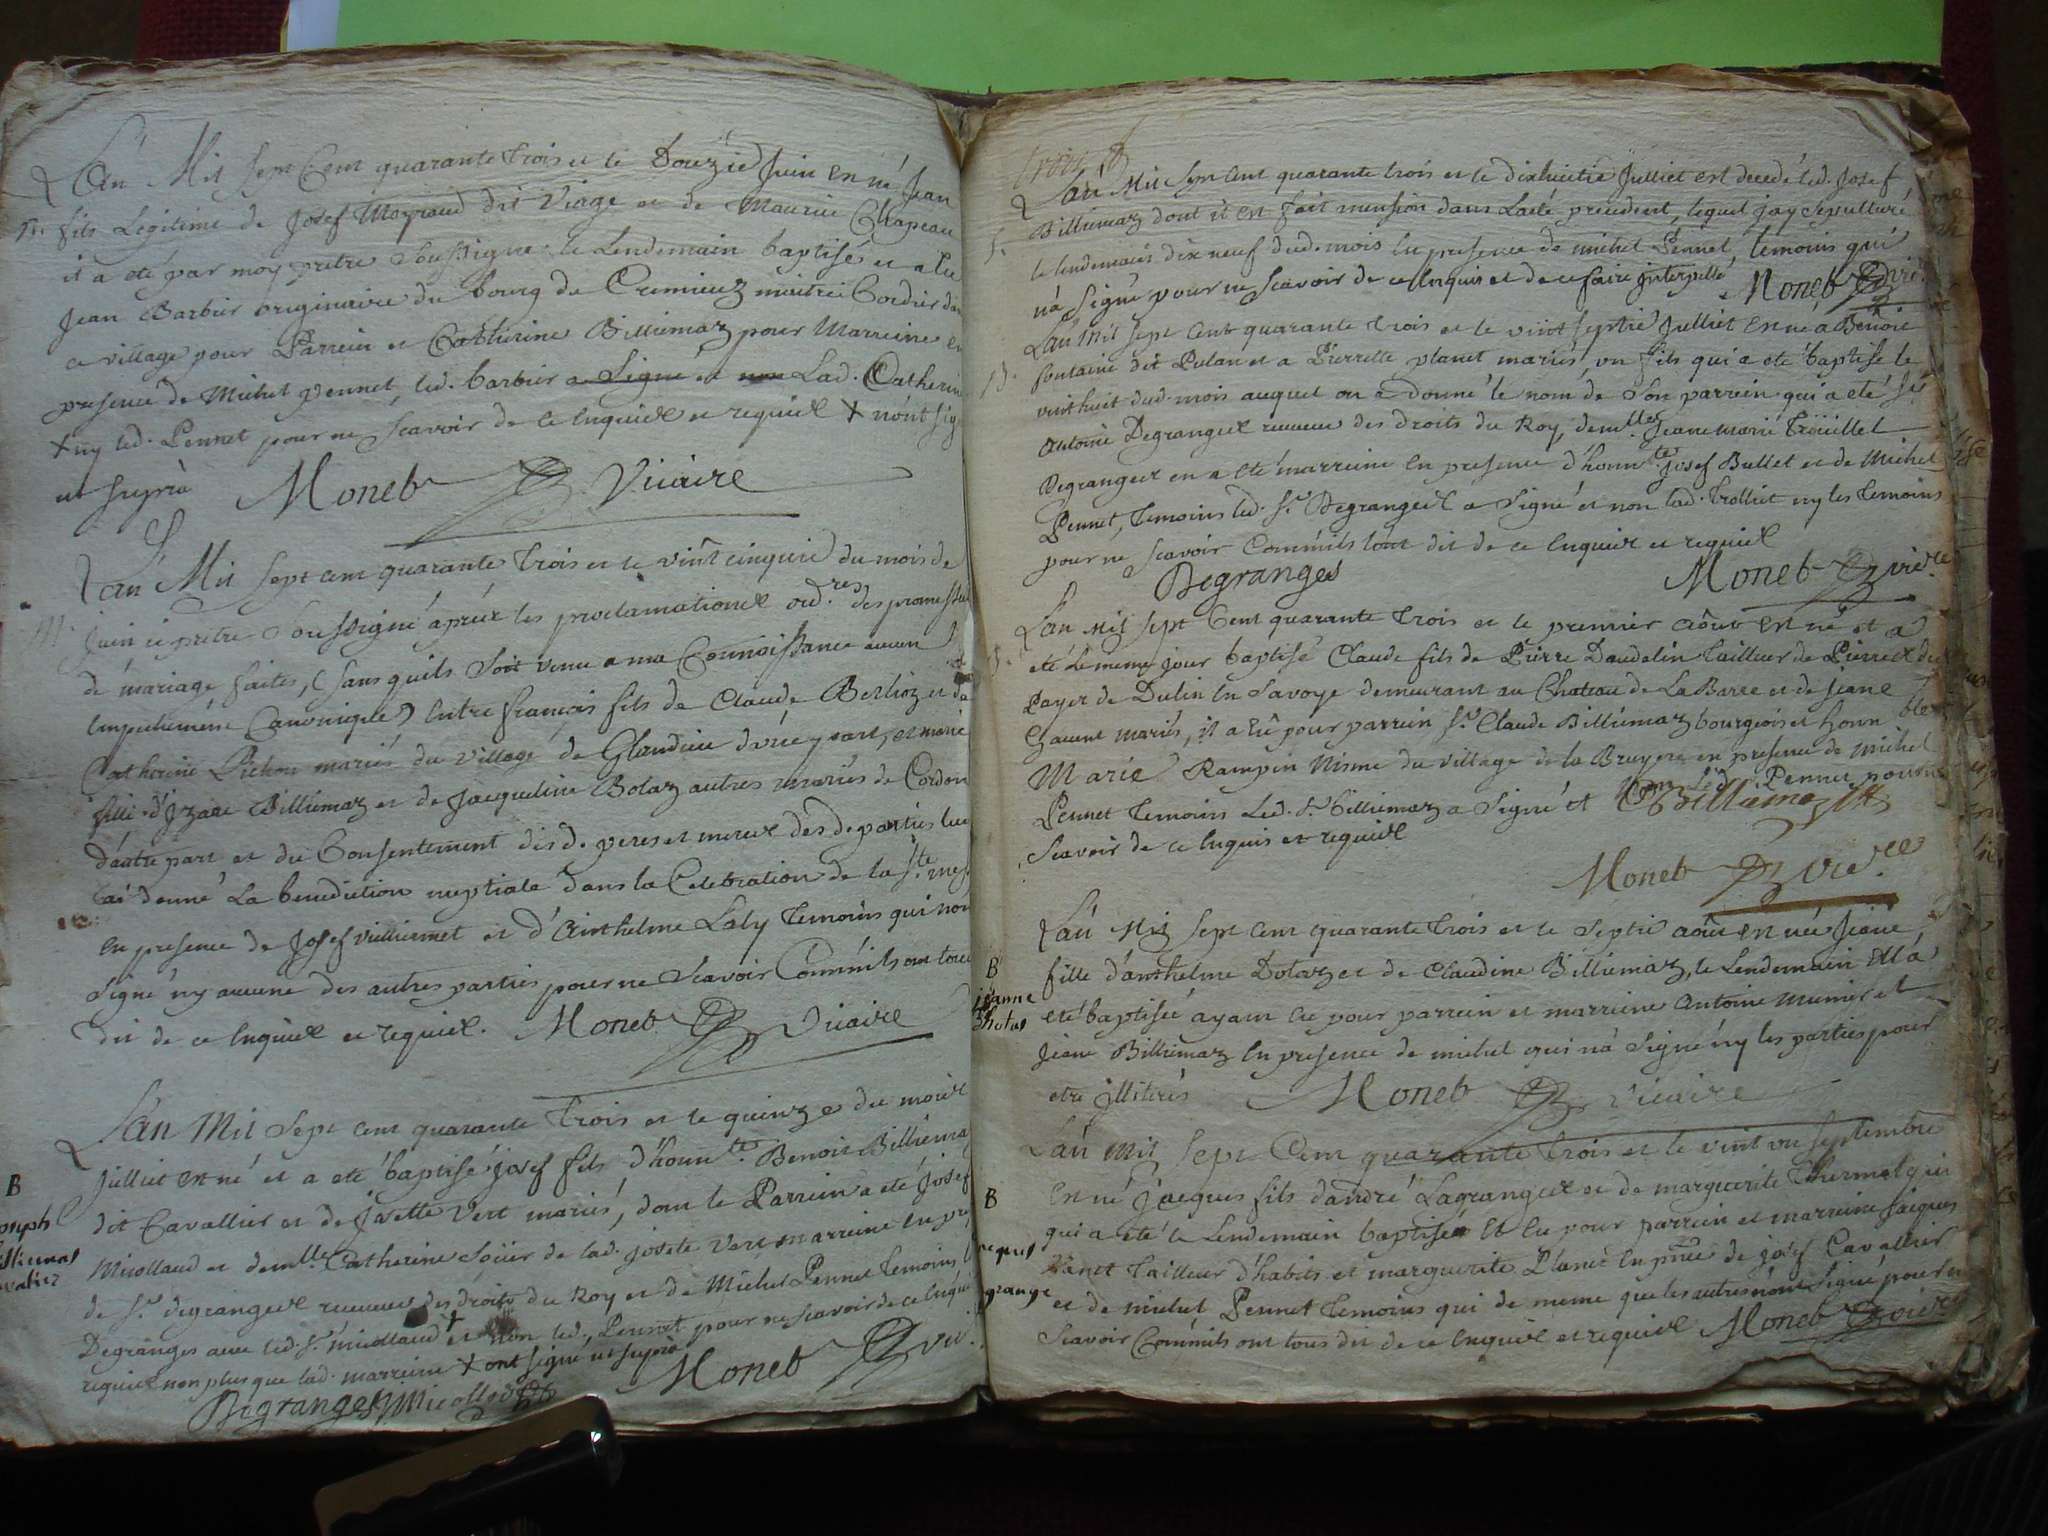 L'an Mil sept Cent quarante trois et le Douzie Juin est né Jean
B. fils Légitime de Josef Moyroud dit Viage et de Maurise Chapeau
il a eté par moy pretre Soussigné le Lendemain baptisé et a eu
Jean Barbier originaire du bourg de Cremieuz maitre Cordier dans
ce village pour Parrein et Catherine Billiemaz pour Marreine en
presence de Michel Pennet, led. barbier a Signé et non Lad. Catherine
+ ny led. Pennet pour ne Scavoir de ce Enquiex et requiex + n'ont sig
ut supra Moneb Vicaire
L'an Mil sept cent quarante trois et le vint cinquie du mois de
M. Juin je pretre Soussigné aprèx les proclamationex ord.res des promesses
de mariage faites, (sans quils Soit venu a ma Connoissance aucun
Empechemens Canonique) Entre françois fils de Claude Berlioz et de
Catherine Pichon mariés du village de Glandieu d'une part, et marie
fille d'Izaac Billiemaz et de Jacqueline Bolaz autres mariés de Cordon
d'autre part et du Consentement desd. peres et merex des d. parties leur
ai donné La benediction nuptiale dans la Celebration de la Ste. mes
En presence de Josef Vuilliermet et d'Anthelme Laly temoins qui n'on
Signé ny aucune des autres parties pour ne Scavoir Comm'ils ont tous
dit de ce Enquiex et requiex. Moneb Vicaire
L'an Mil Sept cent quarante trois et le quinze du moix
B Julliet est né et a eté baptisé josef fils d'honn.te Benoit Billiema
joseph dit Cavallier et de Josette Vert mariés, dont le Parrein a eté Josef
billiemas Micollaud et dem.lle Catherine Soüer de lad. josete Vert marreine en pre
cavalier de Sr. degrangex receveur des droits du Roy et de Michel Pennet temoins
Degranges avec led. Sr. micollaud + et non led. Pennet pour ne scavoir de ce Enquie
requiex non plus que lad. marreine + ont signé ut supra Moneb vic.
Degranges Micollod
L'an Mil Sept Cent quarante trois et le dixhuictie Julliet est decedé led. Josef
S. Billiemaz dont il est fait mension dans L'acte precedent, lequel j'ay sepulturé
le lendemain dix neuf dud. mois En presence de michel Pennet, temoins qui
n'a Signé pour ne Scavoir de ce Enquis et de ce faire interpellé Moneb vic.re
L'an Mil sept Cent quarante trois et le vint septie Julliet est né a Benoit
B. fontaine dit Pulan et a Pierrette planet mariés, un fils qui a eté baptisé le
vint huit dud. mois auquel on a donné le nom de Son parrein qui a eté Sr
Antoine Degrangex receveur des droits du Roy, dem.lle Jeane marie Trouillet
Degrangex en a eté marreine En presence d'honn.te Josef Bullet et de Michel
Pennet, temoins led. Sr. Degrangex a Signé et non lad. Trolliet ny les temoins
pour ne scavoir Comm'ils l'ont dit de ce Enquiex et requiex
Degranges Moneb vic.re
L'an Mil sept Cent quarante trois et le premier août est né et a
B. eté le meme jour baptisé Claude fils de Pierre Daudelin tailleur de Pierrex du
Payer de Dulin En Savoye demeurant au Chateau de La Barre et de Jeane
mariés, il a eû pour parrein Sr. Claude Billiemaz bourgeois et honn.ble
Marie Rampin Nisme du village de la Bruyere en presence de michel
Pennet temoins Led. Sr. billiemaz a Signé et non led. Pennet pour ne
Scavoir de ce Enquis et requiex Billiemaz
Moneb vic.re
L'an Mil sept Cent quarante trois et le septie août est née Jeane
B fille d'anthelme Dolaz et de Claudine Billiemaz, le Lendemain Ell'a
jeanne eté baptisée ayant Eu pour parrein et marreine Antoine Munier et
Jeane Billiemaz En presence de michel qui n'a Signé ny les parties pour
etre illiterés Moneb Vicaire
L'an Mil sept Cent quarante trois et le vint un Septembre
B est né Jacques fils d'andré Lagrangex et de marguerite Thermet qui
qui a eté le Lendemain baptisé et Eu pour parrein et marreine jaques
jacques tailleur d'habits et marguerite Planet En pnce de josef Cavallier
grange et de michel Pennet temoins qui de meme que les autres n'ont Signé pour ne
Scavoir Comm'ils ont tous dit de ce Enquiex et requiex Moneb vic.re